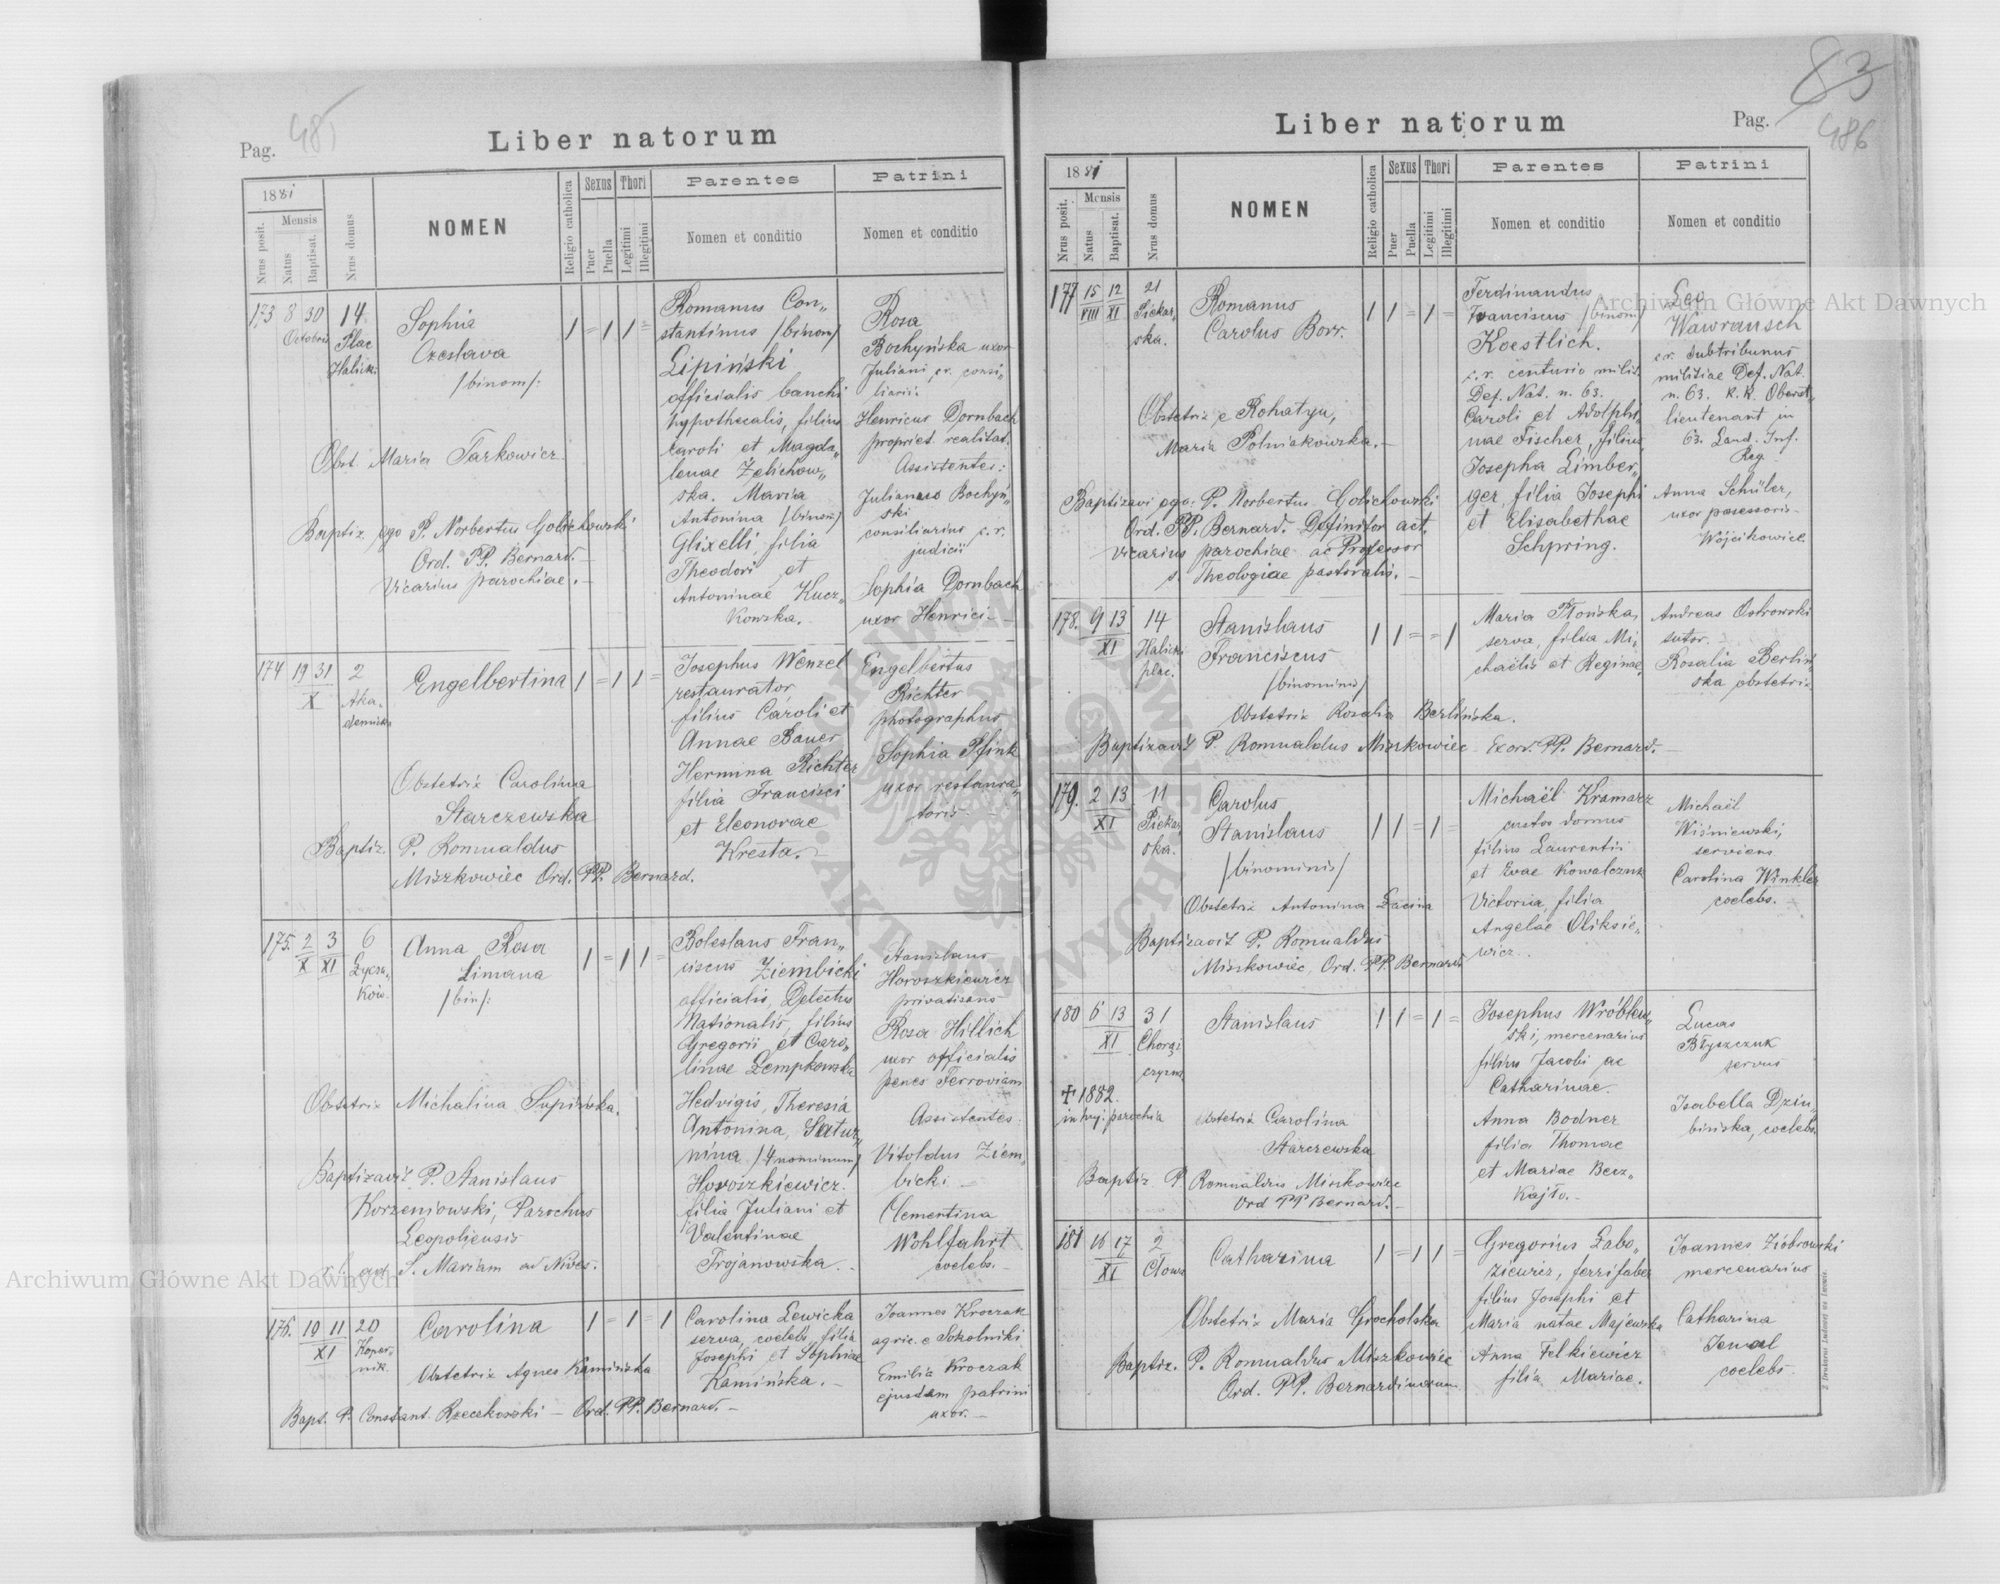 Pag. 485
Liber natorum
1881
Nrus posit.
Mensis
Natus
Baptisat.
Nrus domus
NOMEN
Religio catholica
Sexus
Puer
Puella
Thori
Legitimi
Illegitimi
Parentes
Nomen et conditio
Patrini
Nomen et conditio
173 8 30 14
Octobris Plac
Halick:
Sophia
Czeslava
/binom/:
1 = 1 1 =
Obst. Maria Tarkowicz.
Baptiz. ego P. Norbertus Golichowski
Ord. PP. Bernard. –
Vicarius parochiae. –
Romanus Con„
stantinus /binom/
Lipiński
officialis banchi
hypothecalis, filius
Caroli et Magda„
lenae Zelichow„
ska. Maria
Antonina /binom/
Glixelli filia
Theodori et
Antoninae Kucz„
kowska. –
Rosa
Bochyńska uxor
Juliani c.r. consi„
liarii.
Henricus Dornbach
propriet. realitat.
Assistentes:
Julianus Bochyń„
ski
consiliarius c.r.
judicii
Sophia Dornbach
uxor Henrici –
174 19 31 2
X Aka„
demick.
Engelbertina
1 = 1 1 =
Obstetrix Carolina
Starczewska
Baptiz. P. Romualdus
Miszkowiec Ord. PP. Bernard.
Josephus Wenzel
restaurator
filius Caroli et
Annae Bauer
Hermina Richter
filia Francisci
et Eleonorae
Kresta. –
Engelbertus
Richter
photographus
Sophia Pfink
uxor restaura„
toris –
175. 2 3 6
X XI Łycza„
kow.
Anna Rosa
Limana
/bin/:
1 = 1 1 =
Obstetrix Michalina Supińska.
Baptizavit P. Stanislaus
Korzeniowski, Parochus
Leopoliensis
ad S. Mariam ad Nives.
Boleslaus Fran„
ciscus Ziembicki
officialis, Delectus
Nationalis, filius
Gregorii et Caro„
linae Zempkowska
Hedvigis, Theresia
Antonina, Satur„
nina /4 nominum/
Horoszkiewicz.
filia Juliani et
Valentinae
Trojanowska. –
Stanislaus
Horoszkiewicz
privatisans
Rosa Hillich
uxor officialis
penes Ferroviam
Assistentes:
Vitoldus Ziem„
bicki –
Clementina
Wohlfahrt
coelebs. –
176. 10 11 20
XI Koper„
nik.
Carolina
1 = 1 = 1
Obstetrix Agnes Kamińska
Bapt. P. Constant. Rzeczkowski – Ord. PP. Bernard. –
Carolina Lewicka
serva, coelebs, filia
Josephi et Sophiae
Kamińska. –
Joannes Kroczak
agric. e Sokolniki
Emilia Kroczak
ejusdem patrini
uxor. –
83
Liber natorum
Pag. 486
1881
Nrus posit.
Mensis
Natus
Baptisat.
Nrus domus
NOMEN
Religio catholica
Sexus
Puer
Puella
Thori
Legitimi
Illegitimi
Parentes
Nomen et conditio
Patrini
Nomen et conditio
177 15 12 21
VIII XI Piekar„
ska.
Romanus
Carolus Borr.
1 1 = 1 =
Obstetrix e Rohatyn,
Maria Polniakowska. –
Baptizavi ego: P. Norbertus Golichowski
Ord. PP. Bernard. Definitor act.
vicarius parochiae ac Professor
s. Theologiae pastoralis. –
Ferdinandus
Franciscus /binom/
Koestlich.
c.r. centurio milit.
Def. Nat. n. 63.
Caroli et Adolphi„
nae Fischer, filius
Josepha Limber„
ger, filia Josephi
et Elisabethae
Schpring.
Leo
Wawrausch
c.r. subtribunus
militiae Def. Nat.
n. 63. K.K. Oberst„
lieutenant in
63. Land. Inf.
Reg.
Anna Schüler,
uxor possessoris
Wójcikowice.
178. 9 13 14
XI Halicki
plac.
Stanislaus
Franciscus
/binominis/
1 1 = = 1
Obstetrix Rosalia Berlińska.
Baptizavit P. Romualdus Miszkowiec – Ex ord. PP. Bernard. –
Maria Płońska,
serva, filia Mi„
chaëlis et Reginae.
Andreas Ostrowski
sutor. –
Rosalia Berliń
ska obstetrix
179. 2 13 11
XI Piekar
ska.
Carolus
Stanislaus
/binominis/
1 1 = 1 =
Obstetrix Antonina Lacina
Baptizavit P. Romualdus
Miszkowiec, Ord. PP. Bernard.
Michaël Kramarz
custos domus
filius Laurentii
et Evae Kowalczuk
Victoria, filia
Angelae Oliksie„
wicz.
Michaël
Wiśniewski,
serviens
Carolina Winkler
coelebs. –
180 6 13 31
XI Chorąż
czyzna
Stanislaus
1 1 = 1 =
✝ 1882.
in huj. parochia
Obstetrix Carolina
Starczewska
Baptiz. P. Romualdus Miszkowiec
Ord PP Bernard. –
Josephus Wróblew„
ski, mercenarius
filius Jacobi ac
Catharinae.
Anna Bodner
filia Thomae
et Mariae Bez„
kajło. –
Lucas
Błyszczuk
servus
Isabella Dziu„
bińska, coelebs.
181 16 17 2
XI Cłowa
Catharina
1 = 1 1 =
Obstetrix Maria Grocholska
Baptiz. P. Romualdus Miszkowiec
Ord. PP. Bernardinorum.
Gregorius Łabo„
ziewicz, ferrifaber
filius Josephi et
Maria natae Majewska
Anna Felkiewicz
filia Mariae.
Joannes Ziobrowski
mercenarius
Catharina
coelebs.
Archiwum Główne Akt Dawnych
Archiwum Główne Akt Dawnych
ARCHIWUM GŁÓWNE AKT DAWNYCH